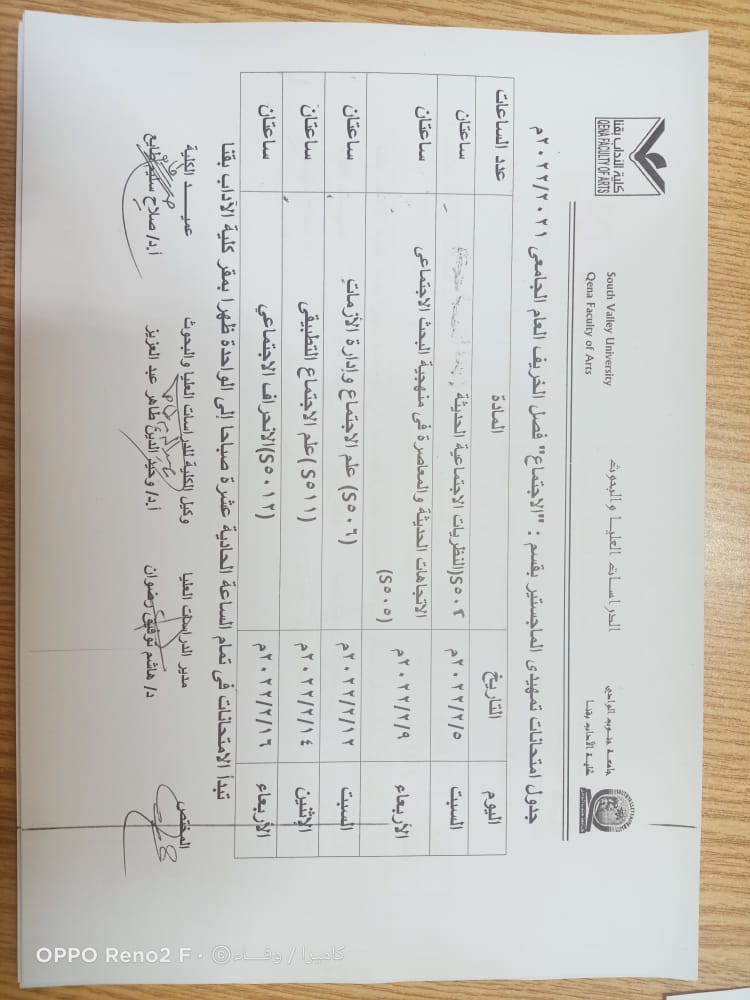 كلية الآداب بقنا
QENA FACULTY OF ARTS
South Valley University
Qena Faculty of Arts
الدراسات العليا والبحوث
جامعة جنوب الوادي
كلية الآداب بقنا
جدول امتحانات تمهيدى الماجستير بقسم : "الاجتماع" فصل الخريف العام الجامعى ٢٠٢٢/٢٠٢١م
اليوم التاريخ المادة عدد الساعات
السبت ٢٠٢٢/٢/٥م S٥٠٣)النظريات الاجتماعية الحديثة ساعتان
الأربعاء ٢٠٢٢/٢/٩م الاتجاهات الحديثة والمعاصرة فى منهجية البحث الاجتماعى ساعتان
(S٥٠٥)
السبت ٢٠٢٢/٢/١٢م (S٥٠٦) علم الاجتماع وإدارة الأزمات ساعتان
الإثنين ٢٠٢٢/٢/١٤م (S٥١١)علم الاجتماع التطبيقى ساعتان
الأربعاء ٢٠٢٢/٢/١٦م (S٥٠١٢)الانحراف الاجتماعي ساعتان
تبدأ الامتحانات فى تمام الساعة الحادية عشرة صباحا إلى الواحدة ظهرا بمقر كلية الآداب بقنا
المختص مدير الدراسات العليا وكيل الكلية للدراسات العليا والبحوث عميد الكلية
د/ هاشم توفيق رضوان أ.د/ وحيد الدين طاهر عبد العزيز أ.د/ صلاح سليم طايع
OPPO Reno2 F · ©كاميرا / وفاء